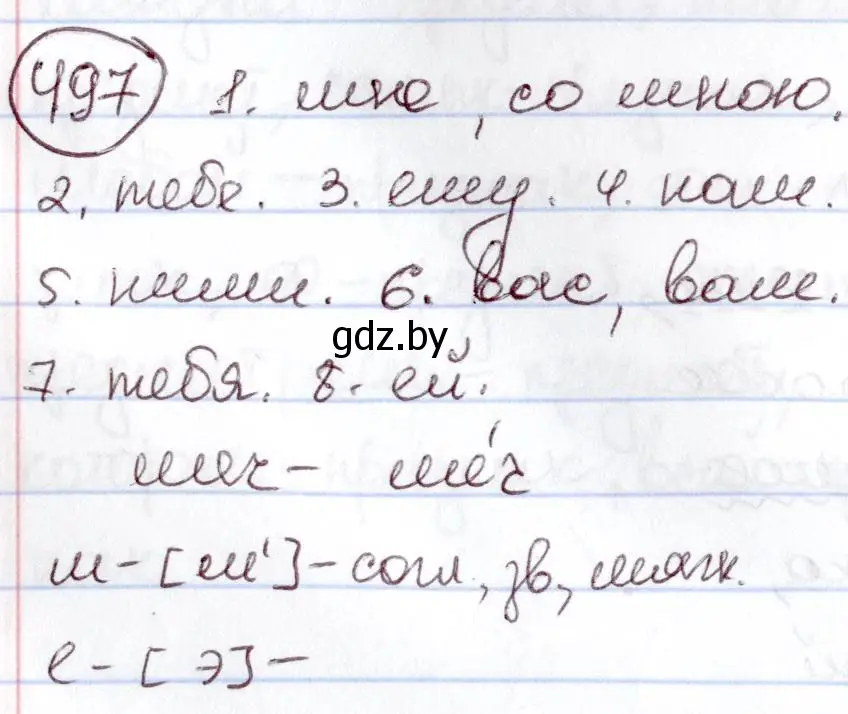 497 1. мне, со мною.
2. тебе. 3. ему. 4. нам.
5. ними. 6. вас, вам.
gdz.by
7. тебя. 8. ей.
меч – ме́ч
м – [м'] – согл., зв., мягк.
е – [э] –